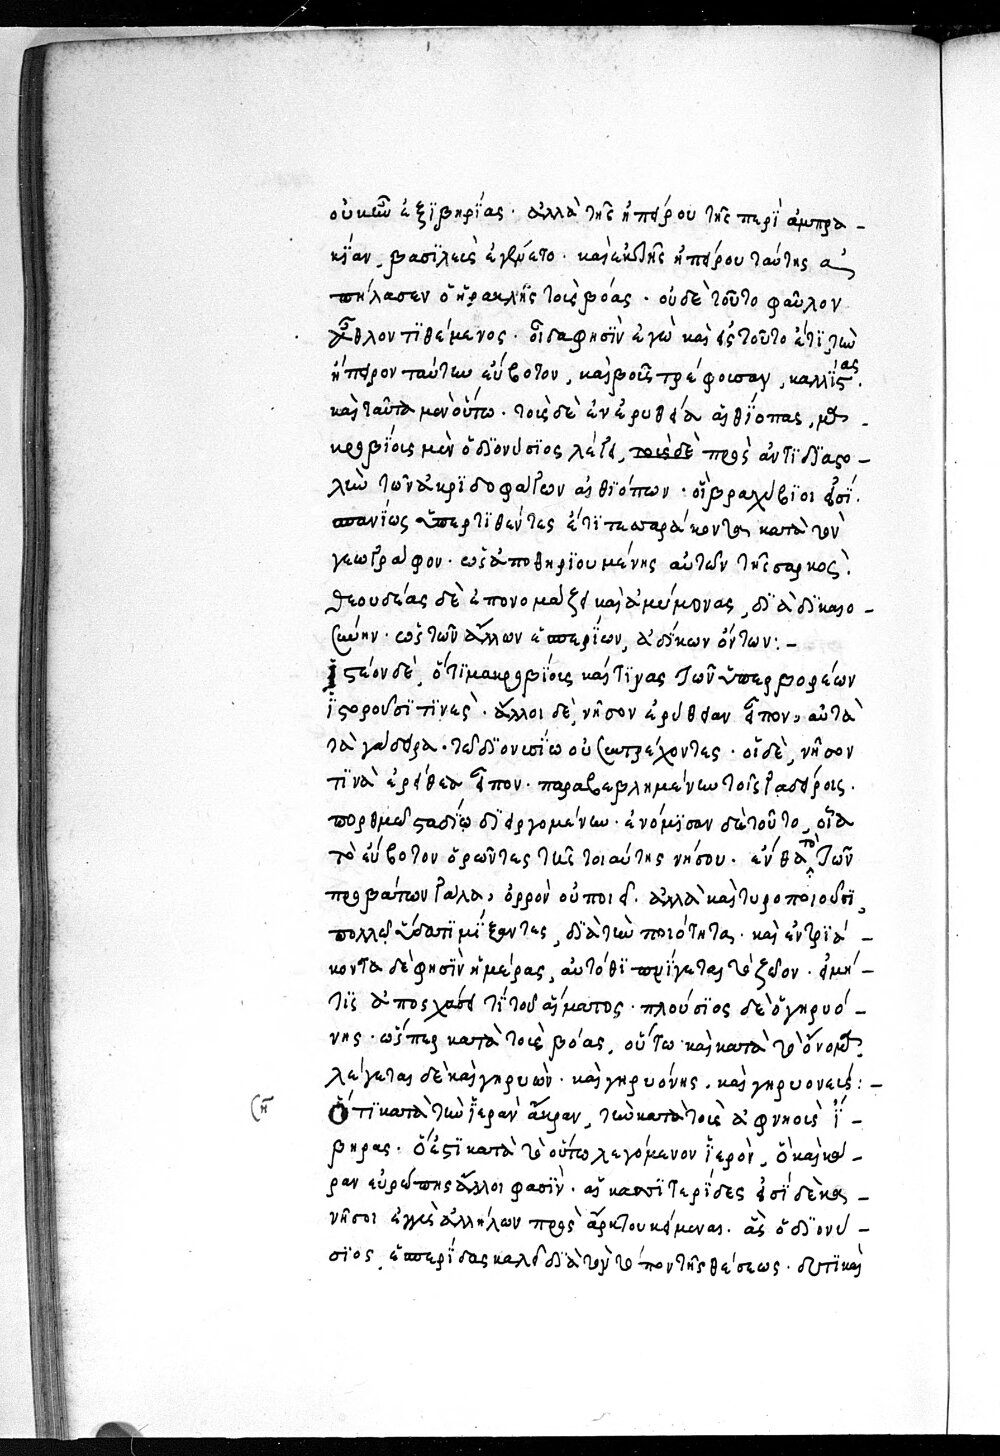 οὐκ ὢν ἐξ ἰβηρίας · ἀλλὰ τῆς ἠπείρου τῆς περὶ ἀμπρα -
κίαν, βασιλεὺς ἐγένετο · καὶ ἐκ τῆς ἠπείρου ταύτης ἀ
πήλασεν ὁ ἡρακλῆς τοὺς βόας · οὐδὲ τοῦτο φαῦλον
ἆθλον τιθέμενος · οἶδα φησὶν ἐγὼ καὶ εἰς τοῦτο ἔτι τὴν
ἤπειρον ταύτην εὔβοτον, καὶ βοῦς τρέφουσαν, καλλίστας.
καὶ ταῦτα μὲν οὕτω · τοὺς δὲ ἐν ἐρυθείᾳ αἰθίοπας, μα -
κροβίους μὲν ὁ διονύσιος λέγει, πρὸς ἀντιδιαστο -
λὴν τῶν ἀκριδοφάγων αἰθιόπων · οἳ βραχύβιοι εἰσί.
σπανίως ὑπερτιθέντες ἔτι τεσσαράκοντα κατὰ τὸν
γεωγράφον · ὡς ἀποθηριουμένης αὐτῶν τῆς σαρκὸς.
θεουδέας δὲ ἐπονομάζει καὶ ἀμύμονας, διὰ δικαιο -
σύνην · ὡς τῶν ἄλλων ἑσπερίων, ἀδίκων ὄντων : -
Ἰστέον δὲ, ὅτι μακροβίους καί τινας τῶν ὑπερβορείων
ἱστοροῦσι τινὲς · ἄλλοι δὲ, νῆσον ἐρύθειαν εἶπον, αὐτὰ
τὰ γάδειρα · τῷ διονυσίῳ οὐ συντρέχοντες · οἱ δὲ, νῆσον
τινὰ ἐρύθεια εἶπον · παραβεβλημένην τοῖς γαδείροις ·
πορθμῷ σταδίῳ διειργομένην · ἐνόμισαν δὲ τοῦτο, οἷα
τὸ εὔβοτον ὁρῶντες τῆς τοιαύτης νήσου · ἔνθα τὸ τῶν
προβάτων γάλα, ὀρρὸν οὐ ποιεῖ · ἀλλὰ καὶ τυροποιοῦσι,
πολλῷ ὕδατι μίξαντες, διὰ τὴν πιότητα · καὶ ἐν τριά -
κοντα δὲ φησὶν ἡμέραις, αὐτόθι πνίγεται τὸ ζῷον · εἰ μή -
τις ἀποσχάσει τι τοῦ αἵματος · πλούσιος δὲ ὁ γηρυό -
νης · ὥσπερ κατὰ τοὺς βόας, οὕτω καὶ κατὰ τὸ ὄνομα.
λέγεται δὲ καὶ γηρυὼν · καὶ γηρυόνης, καὶ γηρυονεύς : -
Ὅτι κατὰ τὴν ἱερὰν ἄκραν, τὴν κατὰ τοὺς ἀφνηοὺς ἴ -
βηρας · ὅ ἐστι κατὰ τὸ οὕτω λεγόμενον ἱερὸν, ὃ καὶ κά -
ραν εὐρώπης ἄλλοι φασὶν · αἱ κασσιτερίδες εἰσὶ δέκα -
νῆσοι ἐγγὺς ἀλλήλων πρὸς ἄρκτον κείμεναι · ἃς ὁ διονύ -
σιος, ἑσπερίδας καλεῖ διὰ τὸν τόπον τῆς θέσεως · δυτικαὶ